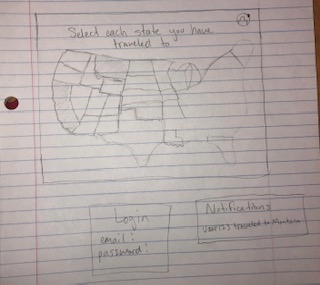 Select each state you have
traveled to
Login
email:
password:
Notifications
traveled to Montana